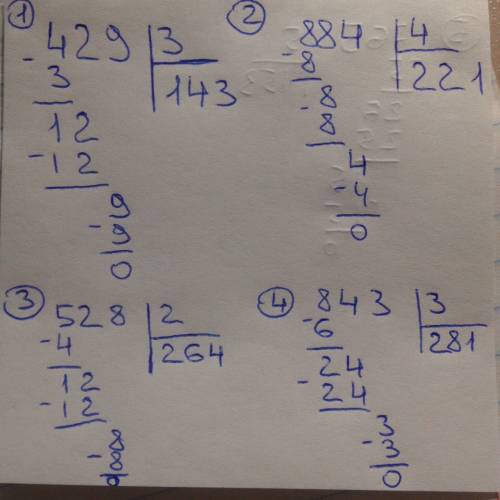 ① 429 | 3
- 3 143
12
- 12
- 9
9
0
② 884 | 4
- 8 221
8
- 8
4
- 4
0
③ 528 | 2
- 4 264
12
- 12
- 8
8
0
④ 843 | 3
- 6 281
24
- 24
3
- 3
0